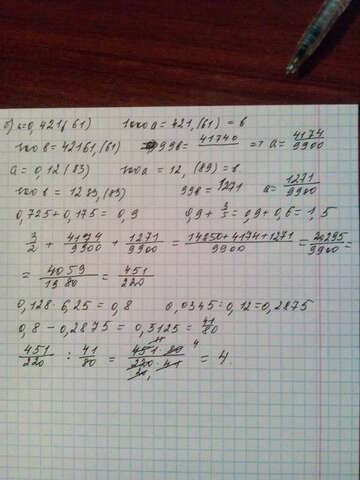 б) a=0,421(61) 1000a = 421,(61) = b
100b = 42161,(61) 99b = 41740 => a = 4174/9900
a = 0,12(83) 100a = 12,(83) = b
100b = 1283,(83) 99b = 1271 a = 1271/9900
0,725+0,175 = 0,9 0,9 + 3/5 = 0,9+0,6 = 1,5
3/2 + 4174/9900 + 1271/9900 = 14850+4174+1271/9900 = 20295/9900 =
= 4059/1980 = 451/220
0,128 · 6,25 = 0,8 0,0345 : 0,12 = 0,2875
0,8 - 0,2875 = 0,5125 = 41/80
451/220 : 41/80 = 451 · 80/220 · 41 = 4